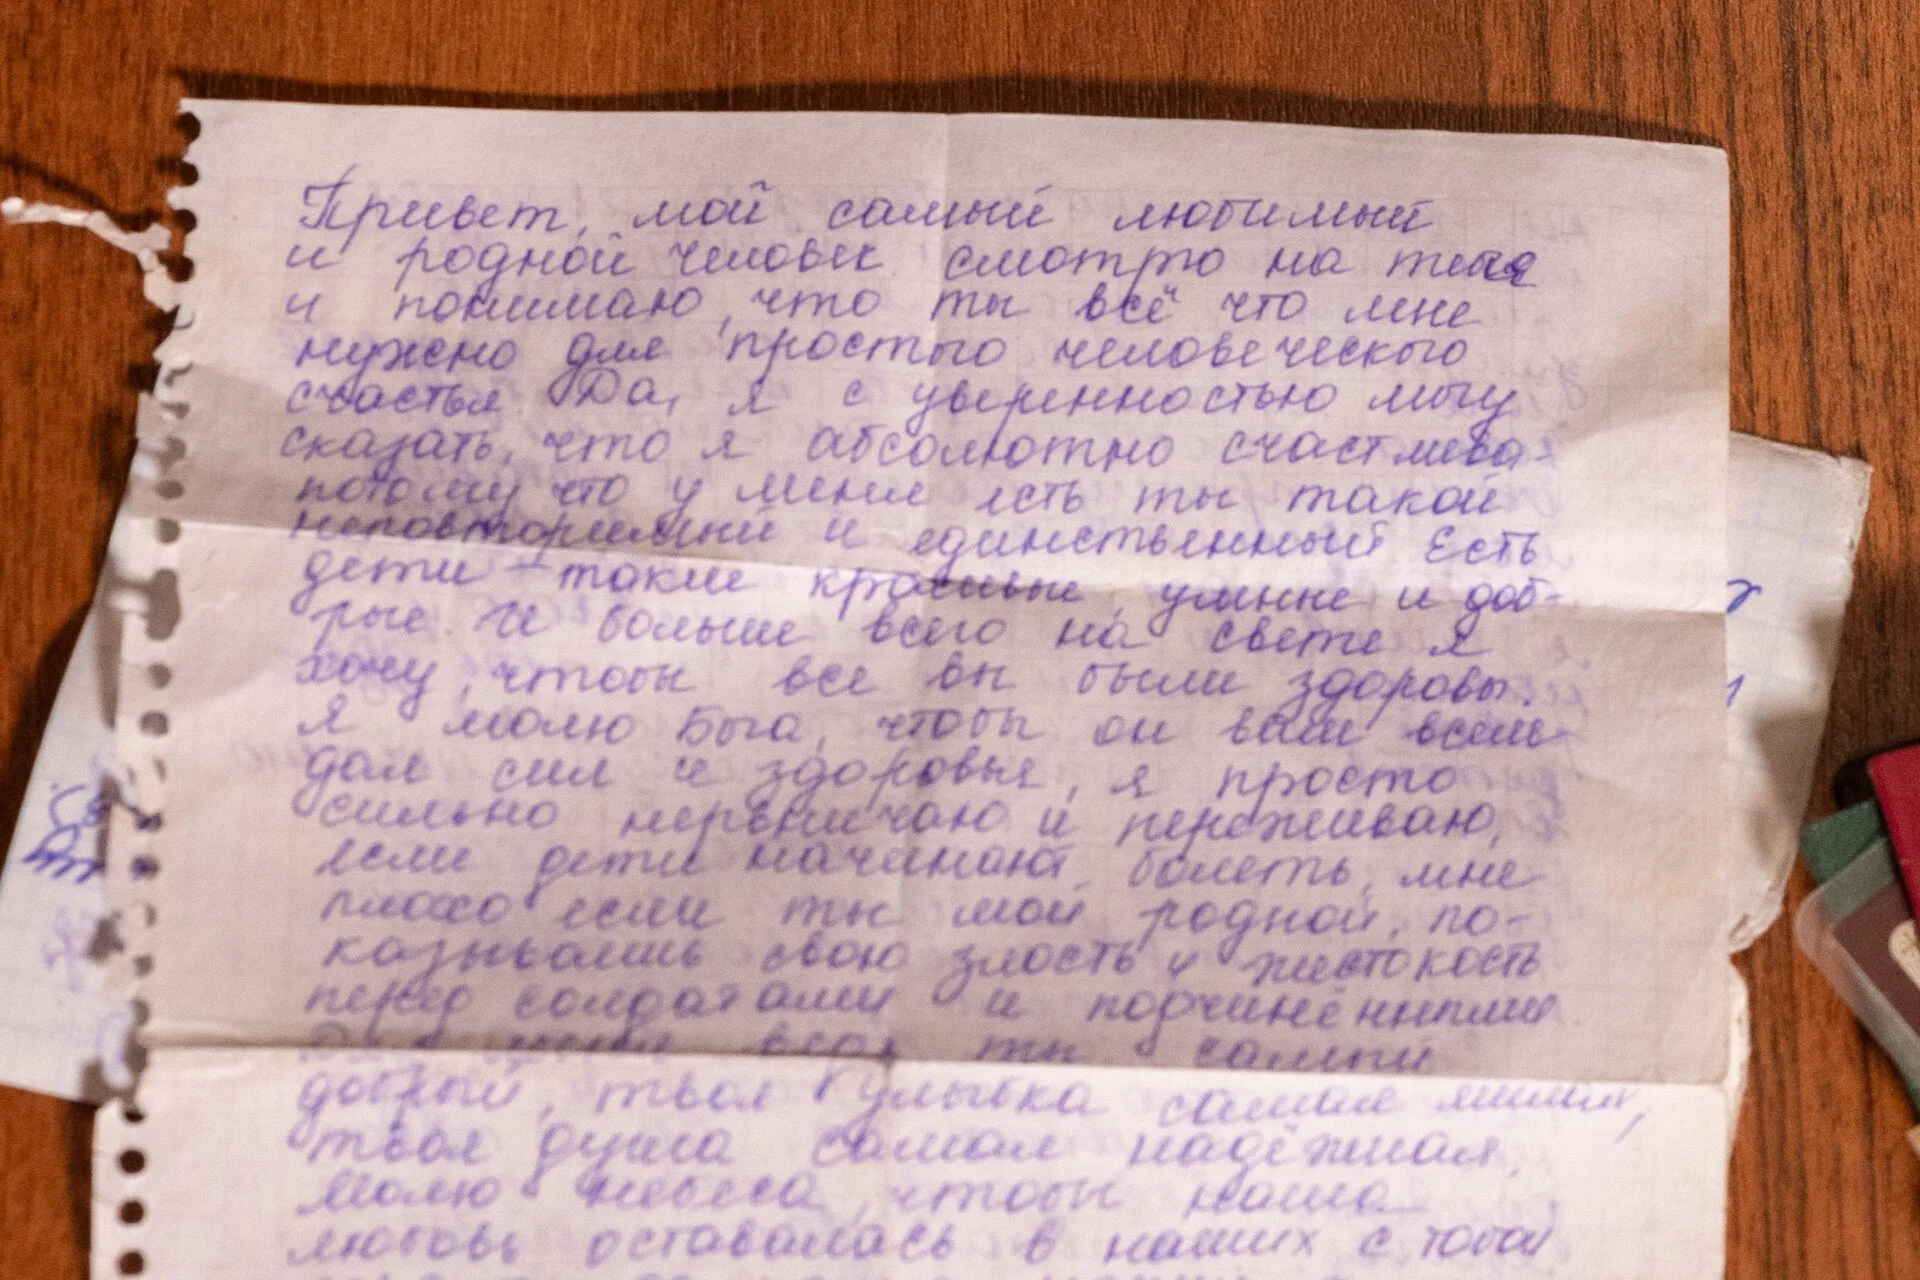 Привет, мой самый любимый
и родной человек смотрю на тебя
и понимаю, что ты всё что мне
нужно для простого человеческого
счастья. Да, я с уверенностью могу
сказать, что я абсолютно счастлива
потому что у меня есть ты такой
неповторимый и единственный Есть
дети – такие красивые, умные и доб-
рые. И больше всего на свете я
хочу, чтобы все вы были здоровы.
Я молю Бога, чтобы он вам всем
дал сил и здоровья, я просто
сильно нервничаю и переживаю,
если дети начинают болеть, мне
плохо если ты мой родной, по-
казываешь свою злость и жестокость
перед солдатами и подчинёнными.
Для меня ведь ты самый
добрый, твоя улыбка самая милая,
твоя душа самая надёжная.
Молю небеса, чтобы наша
любовь оставалась в наших с тобой